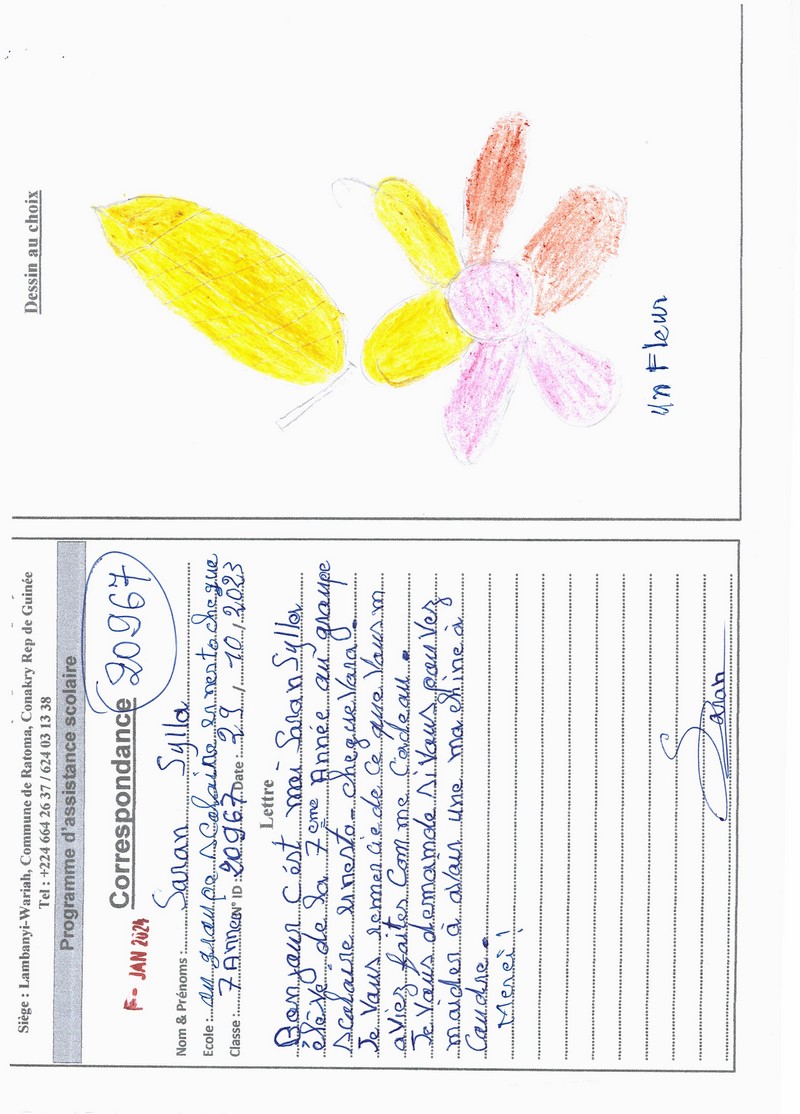 Siège : Lambanyi-Wariah, Commune de Ratoma, Conakry Rep de Guinée
Tel : +224 664 26 37 / 624 03 13 38
Programme d'assistance scolaire
Correspondance
20967
F- JAN 2024
Nom & Prénoms : Saran Sylla
Ecole : au groupe scolaire ernesto chegue
Classe : 7 Annee N° ID : 20967 Date : 29 / 10 / 2023
Lettre
Bonjour C'ést moi Saran Sylla
élève de la 7ème Année au groupe
scolaire ernesto-chegue Vara.
Je Vous remercie de ce que Vous m
aviez faites Comme Cardeau.
Je Vous demainde si Vous pouvez
maider à avair une machine à
Caudre.
Merci !
Saran
Dessin au choix
un Fleur